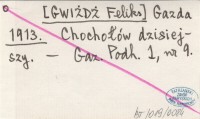 [GWIŻDŻ Feliks] Gazda
1913. Chochołów dzisiej-
szy. — Gaz. Podh. 1, nr 9.